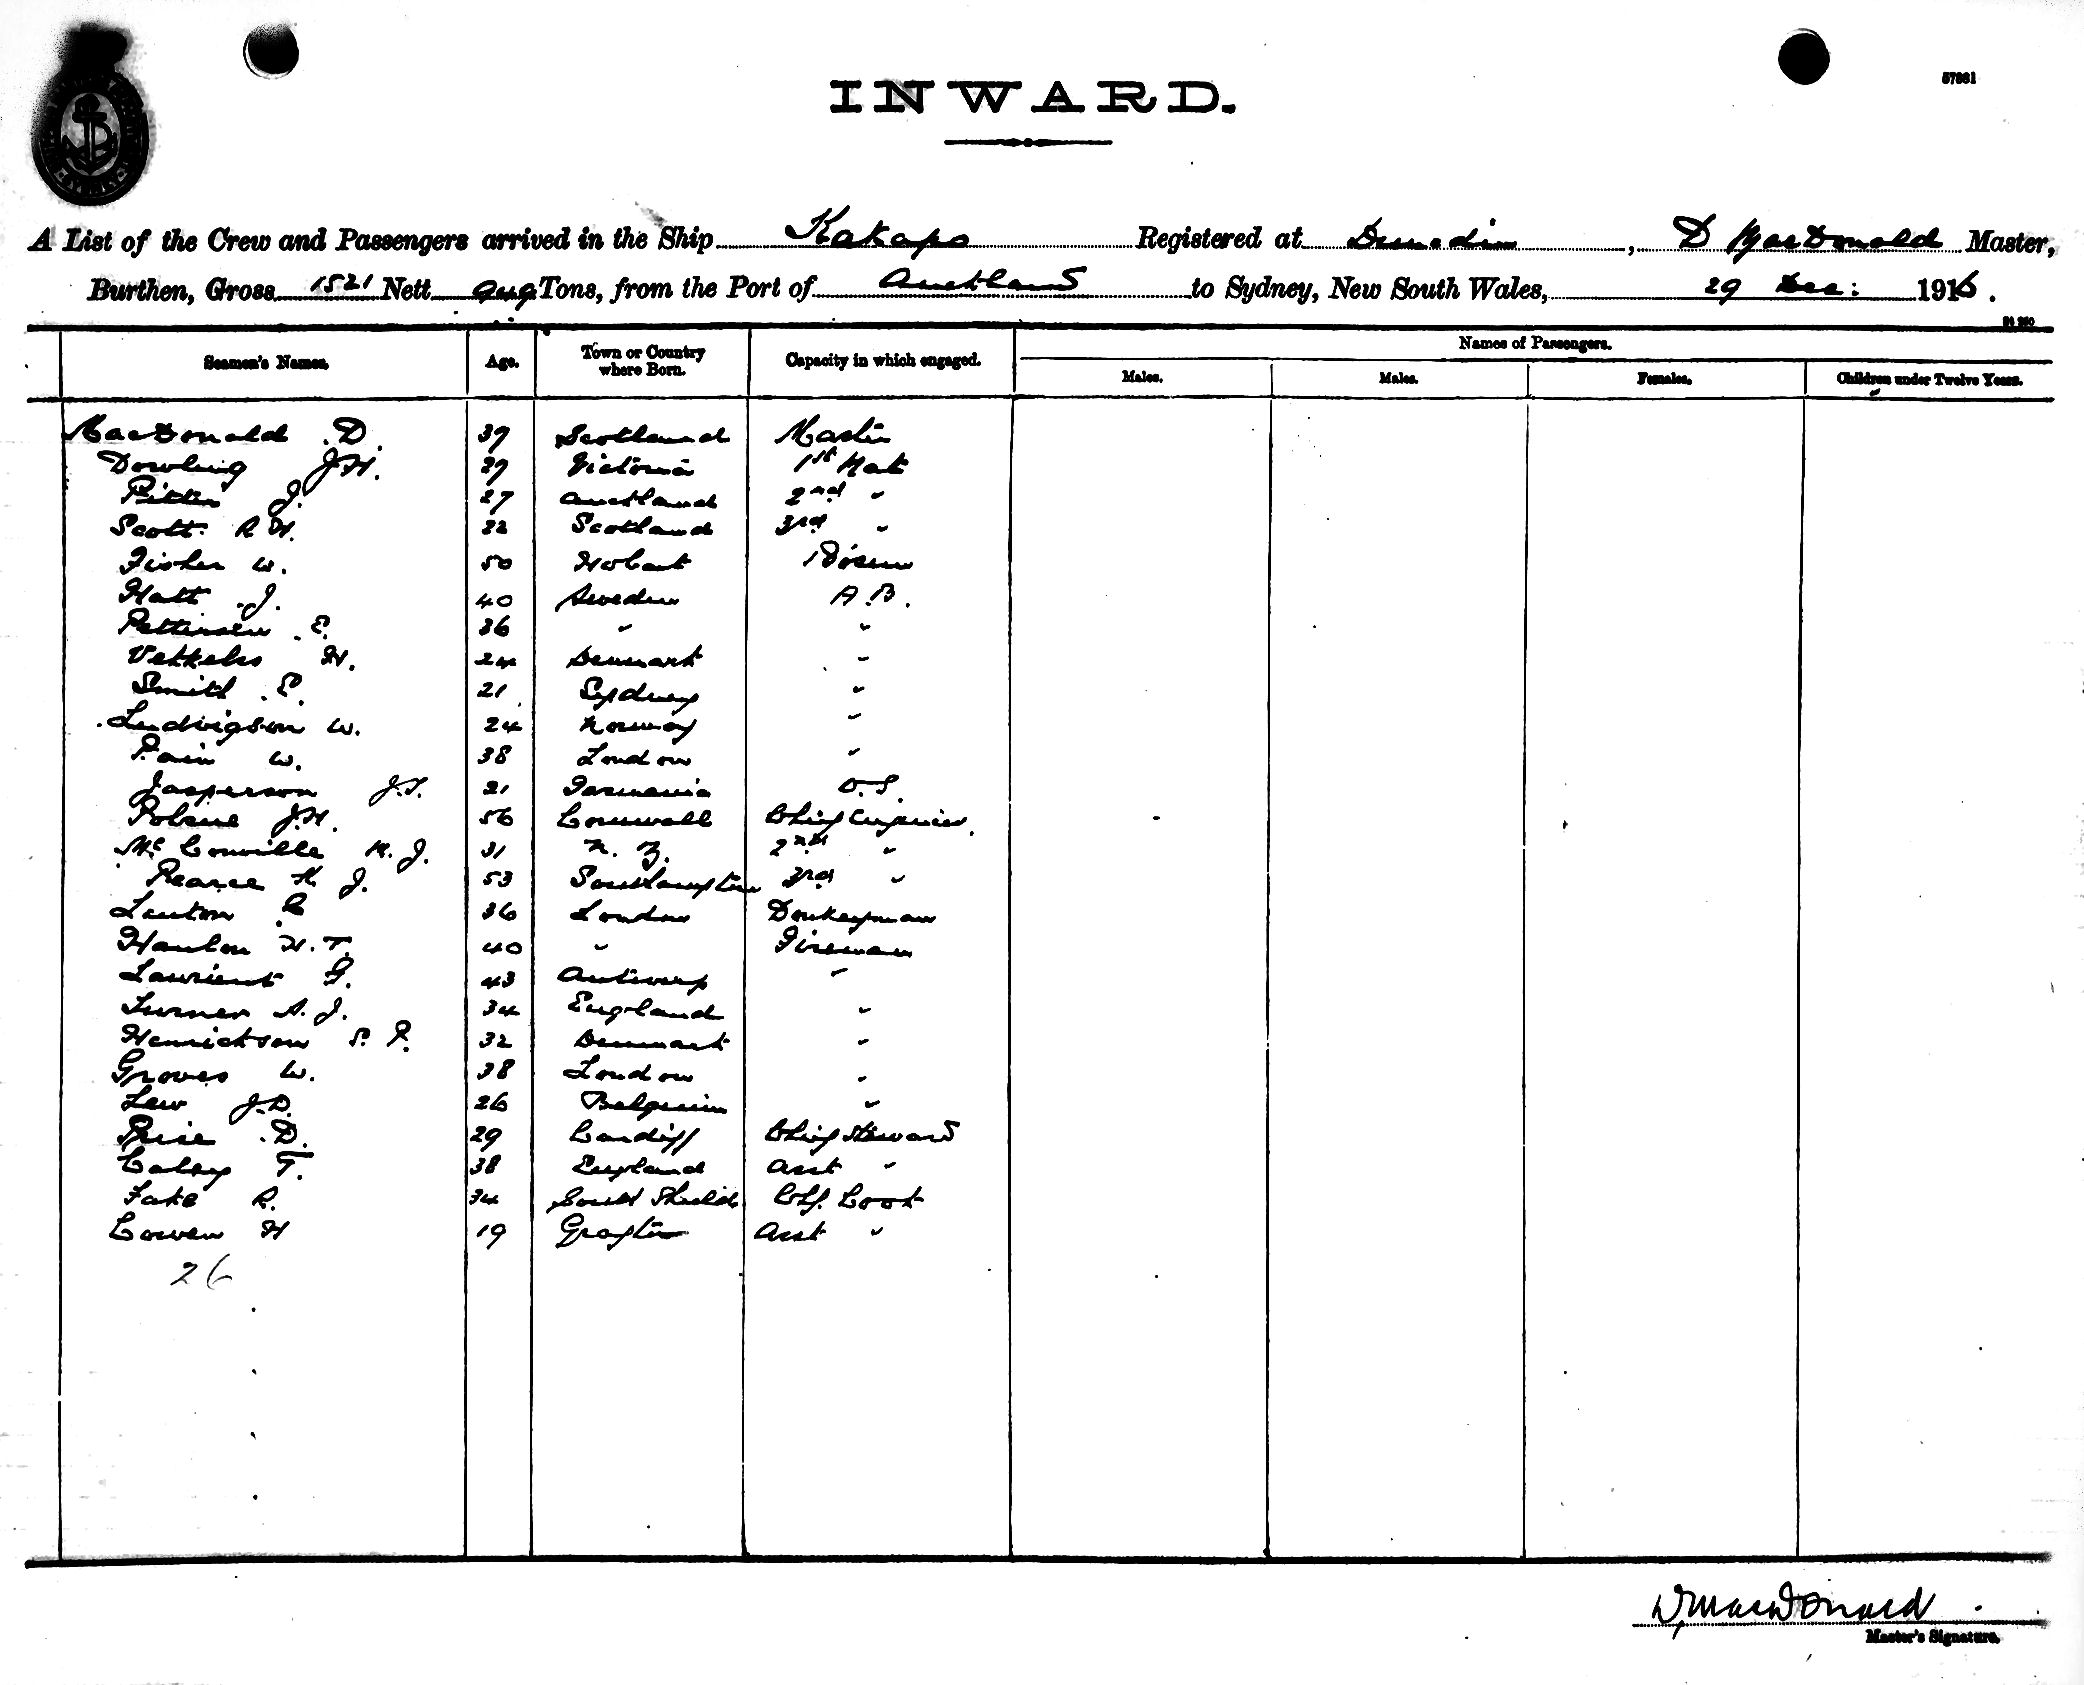 57861
INWARD.
A List of the Crew and Passengers arrived in the Ship Kakapo Registered at Dunedin, D MacDonald Master,
Burthen, Gross 1521 Nett Tons, from the Port of Auckland to Sydney, New South Wales, 29 Dec: 1916.
Names of Passengers.
Seamen's Names. Age. Town or Country where Born. Capacity in which engaged. Males. Males. Females. Children under Twelve Years.
MacDonald D 39 Scotland Master
Dowling J.H. 29 Victoria 1st Mate
J. 27 Auckland 2nd "
Scott R H. 22 Scotland 3rd "
Fisher W. 50 Hobart Bosun
Hatt J. 40 Sweden A.B.
Pettersen E. 36 " "
H. 24 Denmark "
Smith E. 21 Sydney "
Ludvigson W. 24 Norway "
Pain W. 38 London "
Jasperson J.T. 21 Tasmania O.S.
Polsue J.H. 56 Cornwall Chief Engineer
McConville H. J. 31 N. Z. 2nd "
Pearce H J. 53 Southampton 3rd "
Lenton C 36 London Donkeyman
Hanlon H.T. 40 " Fireman
Laurient G. 43 Antwerp "
Turner A. J. 34 England "
Henrickson P. P. 32 Denmark "
Groves W. 38 London "
Lew J.D. 26 Belgium "
Price D. 29 Cardiff Chief Steward
Caley T. 38 England Asst "
Tate R. 34 South Shields Chf. Cook
Cowen H 19 Grafton Asst "
26
D MacDonald
Master's Signature.